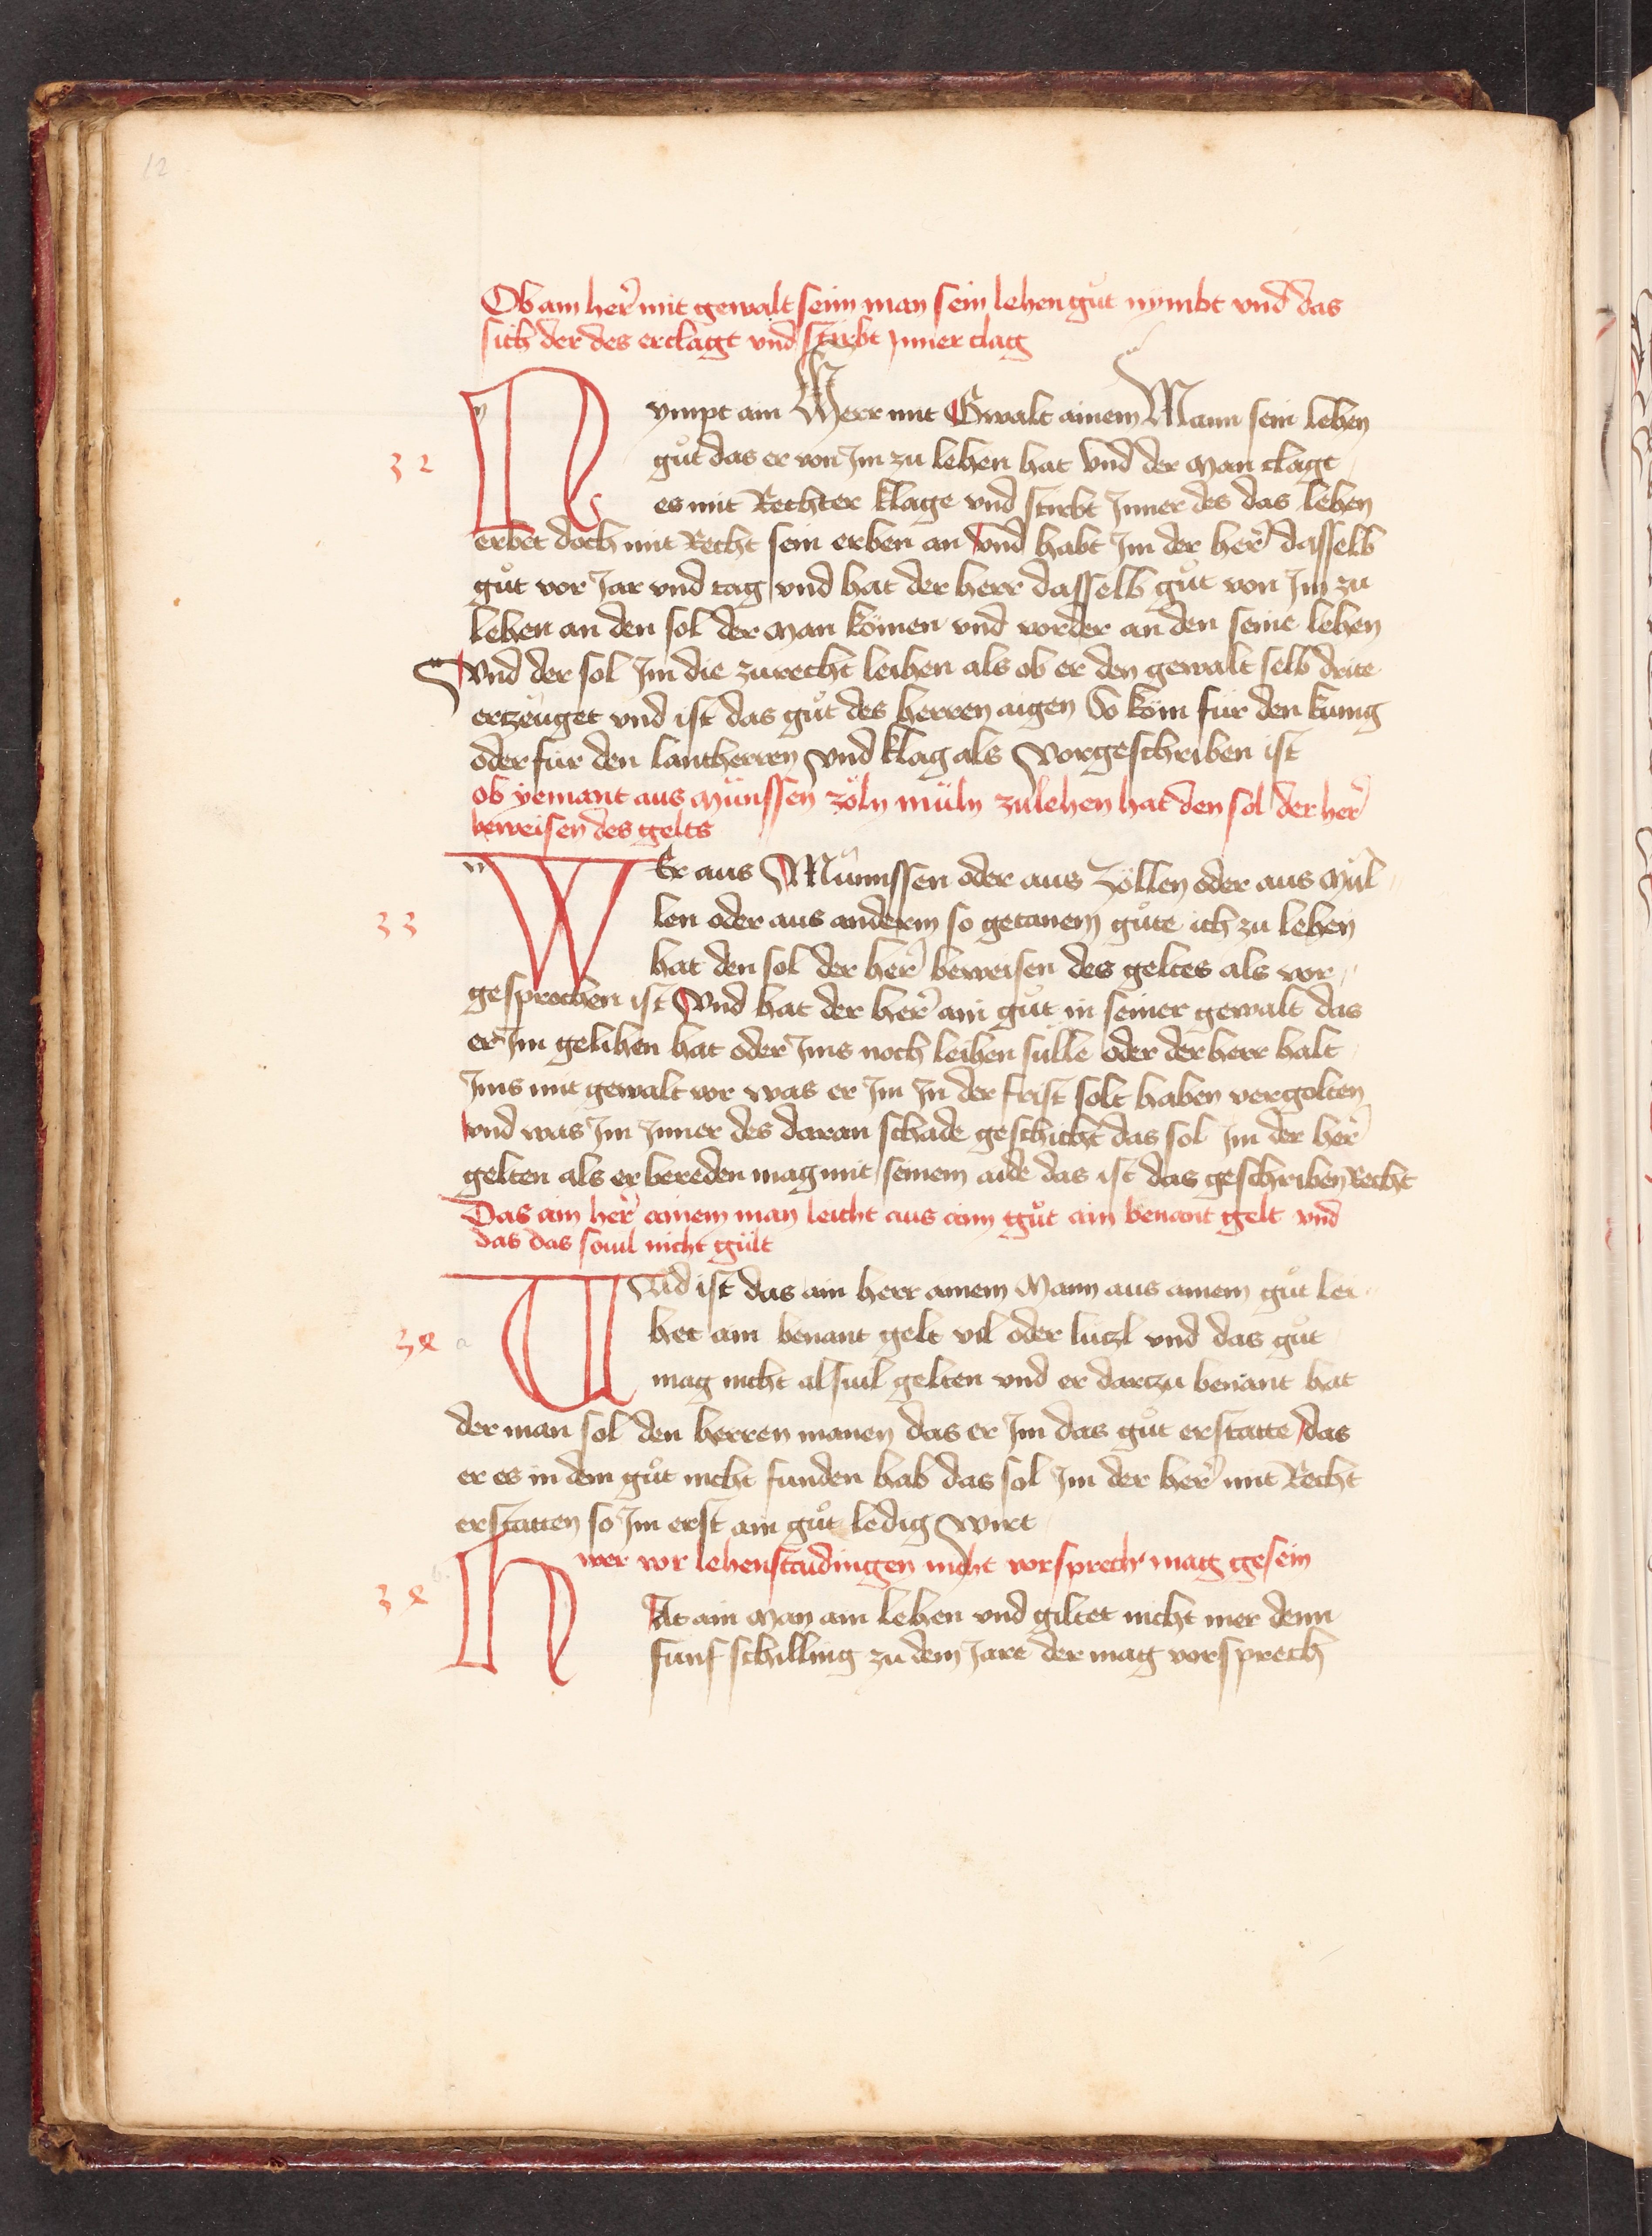 12
Ob ain her̃ mit gewalt seim man sein lehen guͦt nymbt vnd das
sich der des erclagt vnd stirbt Inner clag
Nympt ain Herr mit Gwalt ainem Mann sein lehen
32
guͦt das er von Im zu lehen hat vnd der man clagt
es mit Rechter klage vnd stirbt Inner des das lehen
erbet doch mit Recht sein erben an vnd habt Im der her̃ dasselb
guͦt vor Jar vnd tag vnd hat der herr dasselb guͦt von Im zu
lehen an den sol der man kömen vnd vorder an den seine lehen
Vnd der sol Im die zurecht leihen als ob er den gewalt selb drite
erzeuget vnd ist das guͦt des herren aigen So köm für den kunig
oder für den lantherren vnd klag als Vorgeschriben ist
ob yemant aus münssen zöln müln zulehen hat den sol der her̃
beweisen des gelts
WEr aus Münnssen oder aus Zöllen oder aus mül
33
len oder aus anderm so getanem guͦte ich zu lehen
hat den sol der her̃ beweisen des geltes als vor
gesprochen ist Vnd hat der her̃ ain guͦt in seiner gewalt das
er Im gelihen hat oder Ims noch leihen sülle oder der herr halt
Ims mit gewalt vor was er Im In der frist solt haben vergolten
vnd was Im Inner des daran schade geschicht das sol Im der her̃
gelten als er bereden mag mit seinem aide das ist das geschriben Recht
Das ain her̃ ainem man leicht aus aim guͦt ain benant gelt vnd
das das souil nicht gült
Vnd ist das ain herr ainem Mann aus ainem guͦt lei
34 a
het ain benant gelt vil oder lützl vnd das guͦt
mag nicht alsuil gelten vnd er dartzu benant hat
der man sol den herren manen das er Im das guͦt erstatte das
er es in dem guͦt nicht funden hab das sol Im der her̃ mit Recht
erstatten so Im erst ain guͦt ledig wirt
wer vor lehenstaidingen nicht vorsprech mag gesein
34 b
HAt ain man ain lehen vnd giltet nicht mer denn
fünf schilling zu dem Jare der mag vorsprech